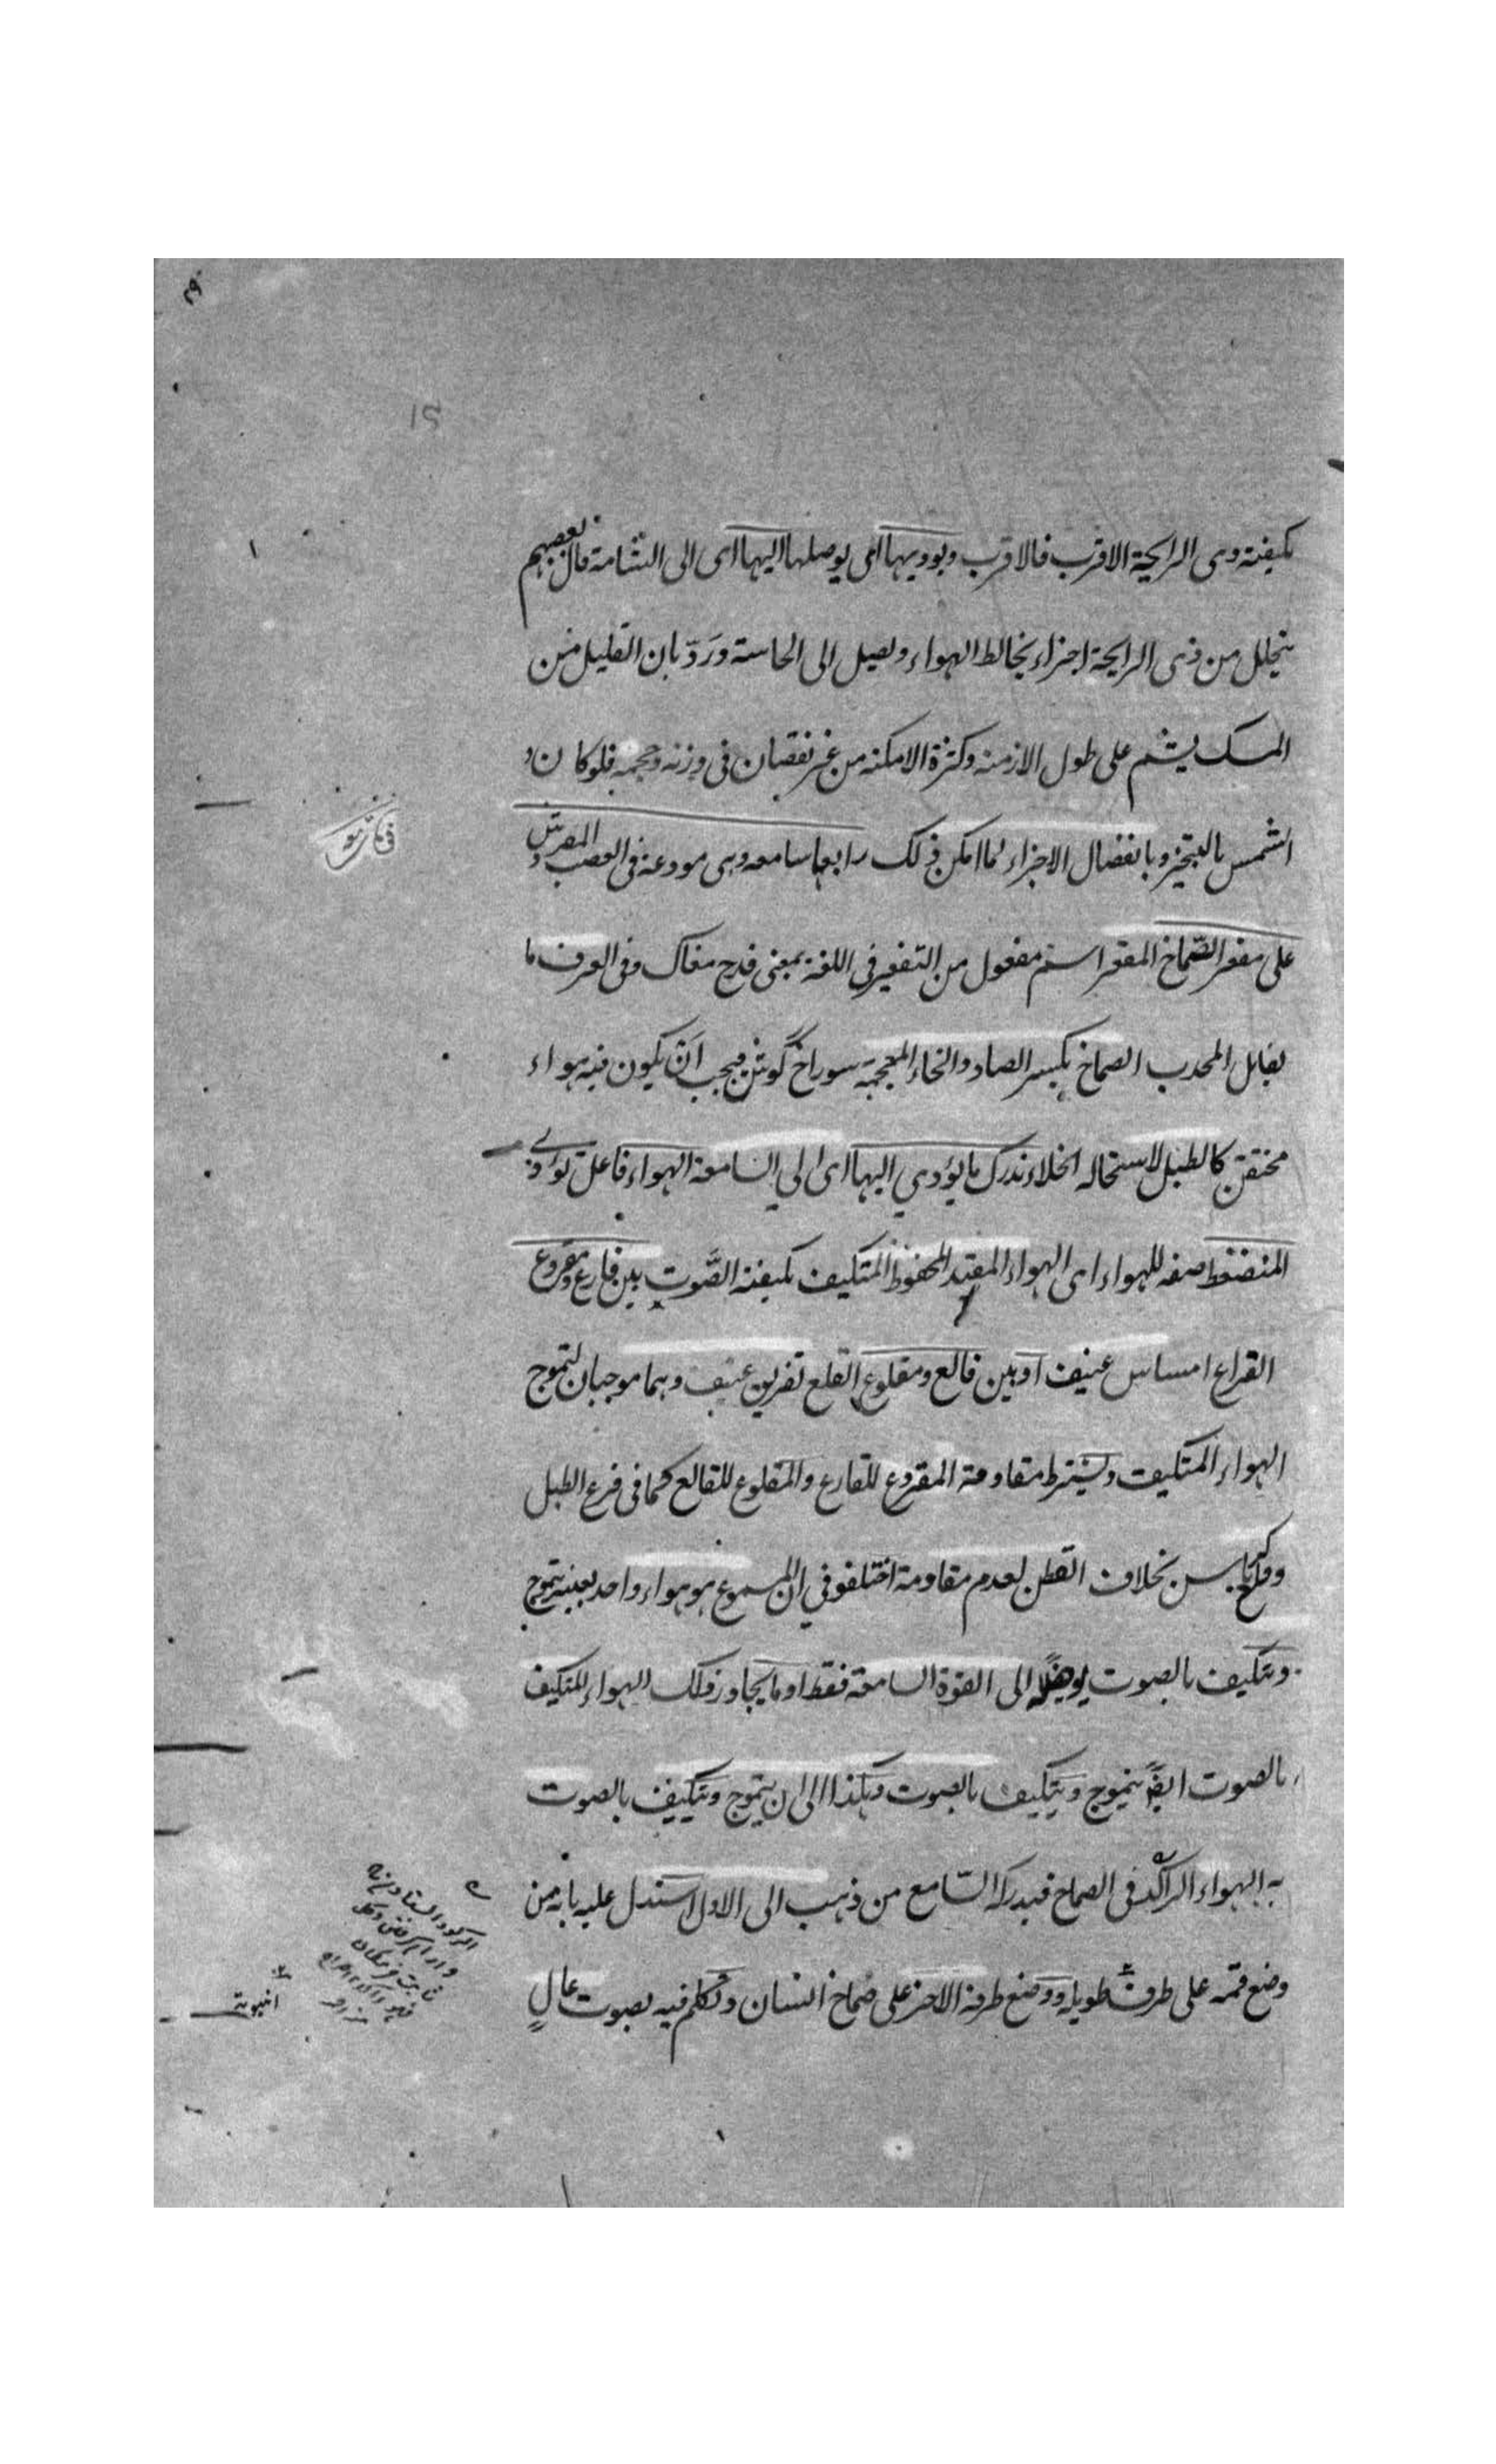 بكيفية ذى الرايحة الاقرب فالاقرب ويوديها اى يوصلها اليها اى الى الشامة قال بعضهم
يتحلل من ذى الرايحة اجزاء يخالط الهواء و يصل الى الحاسة وَرَدّ بان القليل من
المسك يشم على طول الازمنة وكثرة الامكنه من غير نقصان فى وزنه وحجمه فلو كان
الشم بالتبخير وبانفصال الاجزاء لما امكن ذلك رابعها سامعه وهى مودعة فى العصب المفرش
على مقعر الصّماخ المقعر اسم مفعول من التقعير فى اللغة بمعنى قدح مغاك وفى العرف ما
يقابل المحدب الصماخ بكسر الصاد والخاء المعجمة سوراخ گوش فيجب ان يكون فيه هواء
محتقن كالطبل لاستحالة الخلاء تدرك ما يؤدي اليها اى الي السامعة الهواء فاعل يؤدى
المنضغط صفه للهواء اى الهواء المقيد المحفوظ المتكيف بكيفية الصَّوت بين قارع ومقروع
القراع امساس عنيف او بين قالع ومقلوع القلع تفريق عنيف وهما موجبان لتموج
الهواء المتكيف ويشترط مقاومة المقروع للقارع والمقلوع للقالع كما فى قرع الطبل
وقلع الكرباس بخلاف القطن لعدم مقاومة اختلفو في ان المسموع هو هواء واحد بعينه يتموج
ويتكيف بالصوت يوصله الى القوة السامعة فقط او ما يجاور ذلك الهواء المتكيف
بالصوت ايضً يتموج ويتكيف بالصوت وهكذا الى ان يتموج ويتكيف بالصوت
به الهواء الراكد فى الصماخ فيدركه السّامع من ذهب الى الاول استدل عليه بانه من
وضع فمه على طرف طويلة ووضع طرفه الاخر على صماخ انسان وتكلم فيه بصوت عالٍ
انبوبة